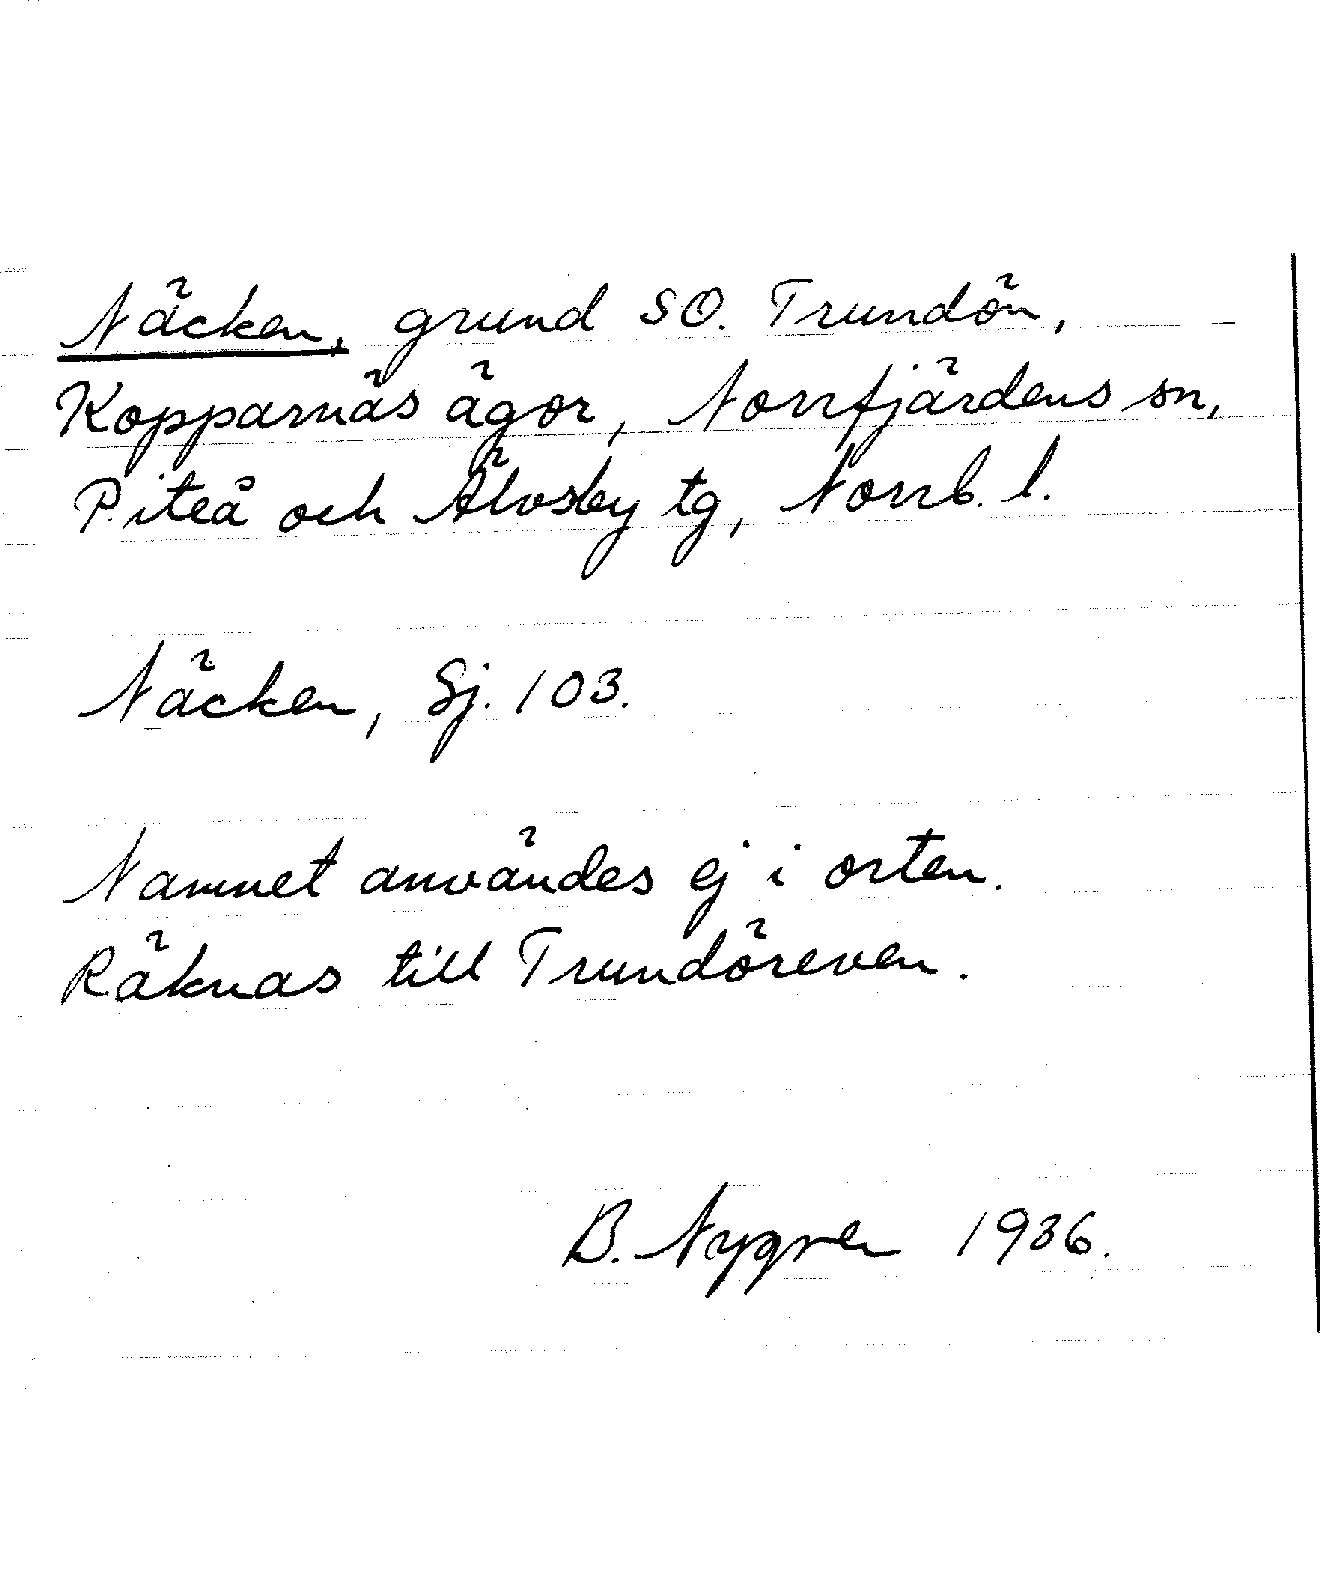 Näcken, grund SO. Trundön,
Kopparnäs ägor, Norrfjärdens sn,
Piteå och Älvsby tg, Norrb. l.
Näcken, Sj. 103.
Namnet användes ej i orten.
Räknas till Trundöreven.
B. Nygren 1936.